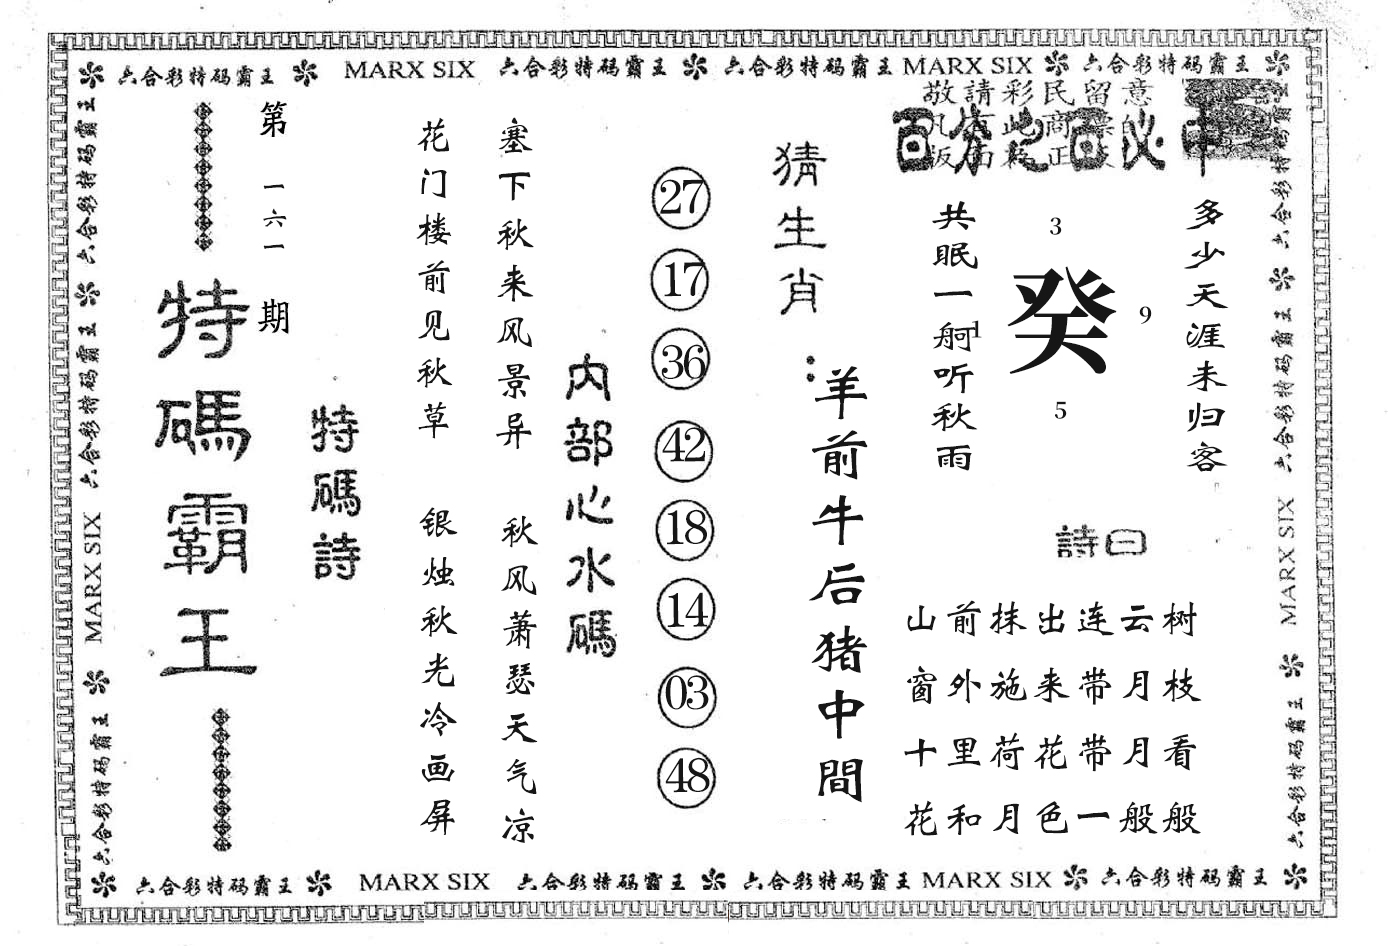 六合彩特码霸王 MARX SIX 六合彩特码霸王 六合彩特码霸王 MARX SIX 六合彩特码霸王
敬請彩民留意
百分之百必中
多少天涯未归客
3
癸
9
1
5
共眠一舸听秋雨
詩曰
山前抹出连云树
窗外施来带月枝
十里荷花带月看
花和月色一般般
猜生肖：
羊前牛后猪中間
27
17
36
42
18
14
03
48
内部心水碼
塞下秋来风景异
秋风萧瑟天气凉
花门楼前见秋草
银烛秋光冷画屏
特碼詩
第一六一期
特碼霸王
六合彩特码霸王 六合彩特码霸王 MARX SIX 六合彩特码霸王
六合彩特码霸王 六合彩特码霸王 MARX SIX 六合彩特码霸王
六合彩特码霸王 MARX SIX 六合彩特码霸王 六合彩特码霸王 MARX SIX 六合彩特码霸王